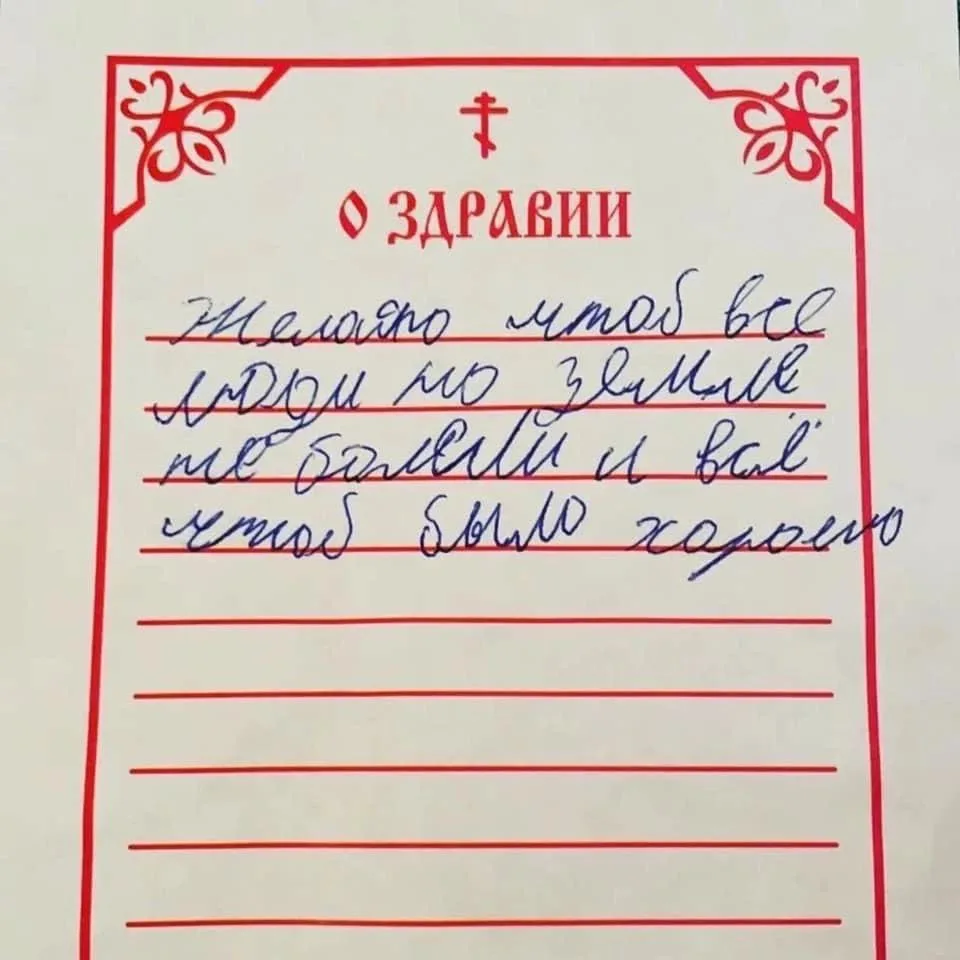 О ЗДРАВИИ
Желаяю чтоб все
люди на земле
не болели и всё
чтоб было хорошо